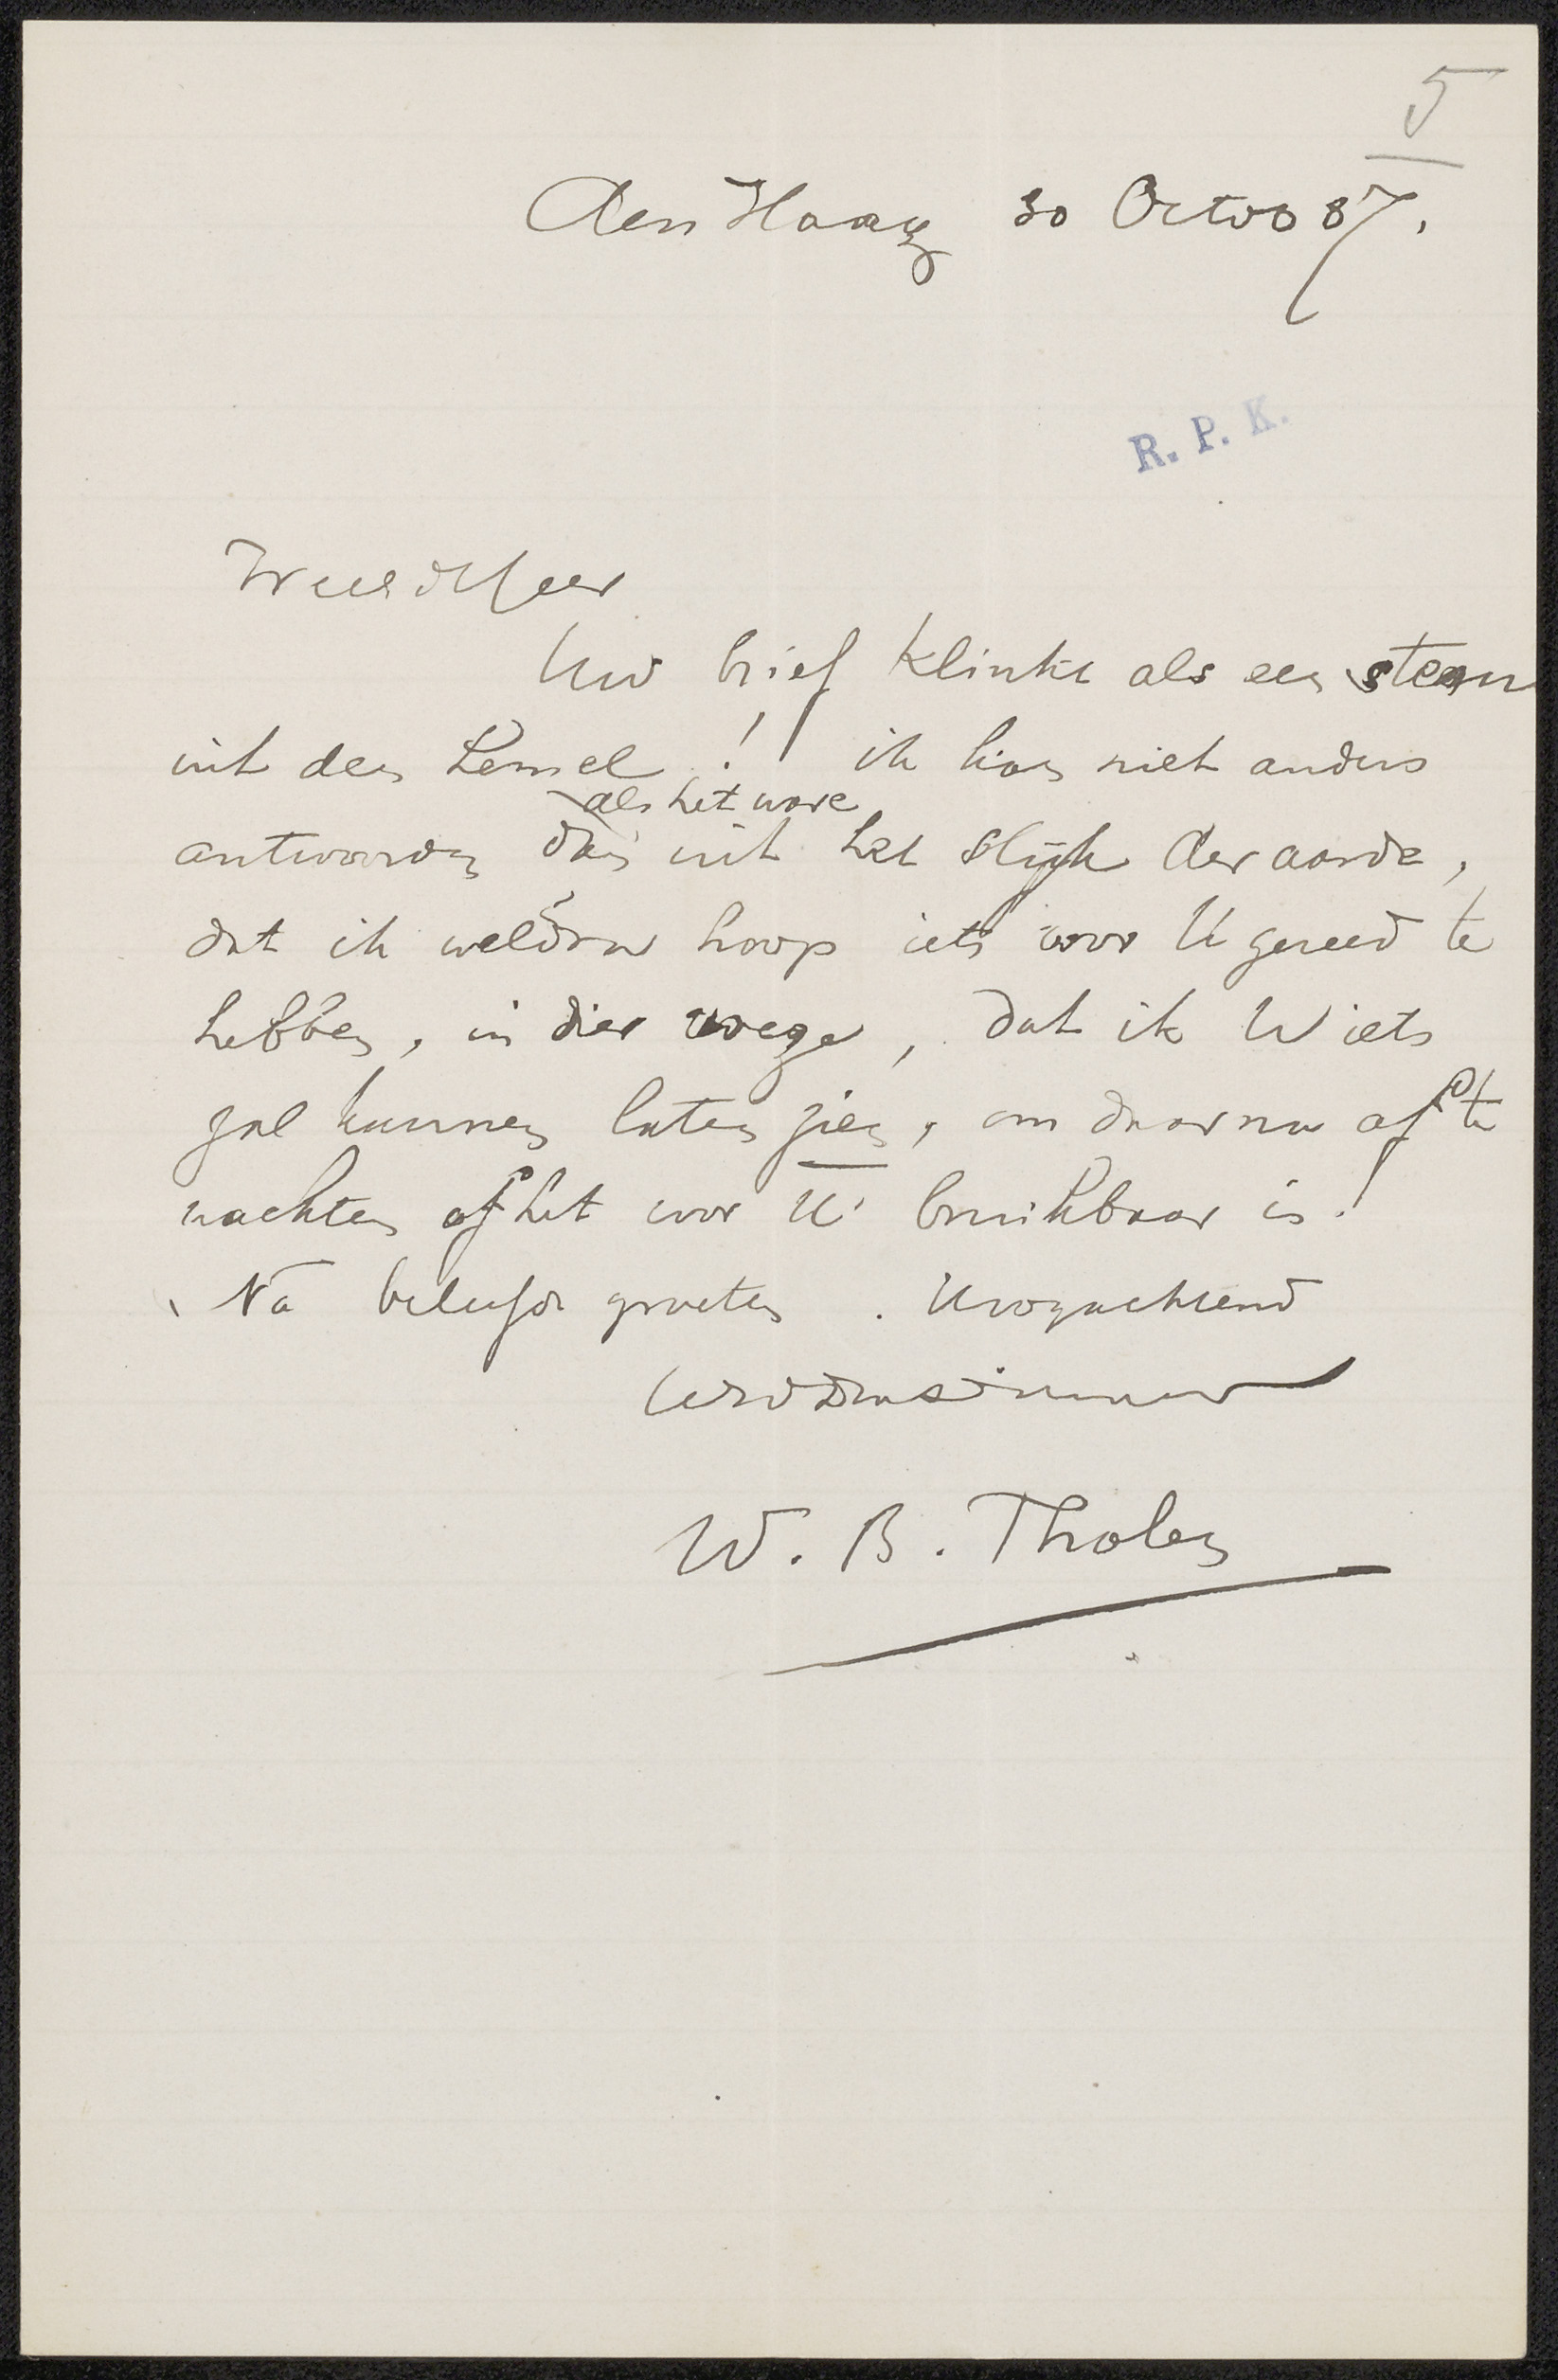 5
Den Haag 30 Octob 87.
R. P. K.
Weled Heer
Uw brief klinkt als een stem
uit den hemel! ik kan niet anders
als het ware
antwoorden dan uit het slijk der aarde,
dat ik weldra hoop iets voor U gereed te
hebben, in dier voege, dat ik U iets
zal kunnen laten zien, om daarna af te
wachten of het voor U bruikbaar is!
Na beleefde groeten. Hoogachtend
UEd dienaar
W. B. Tholen